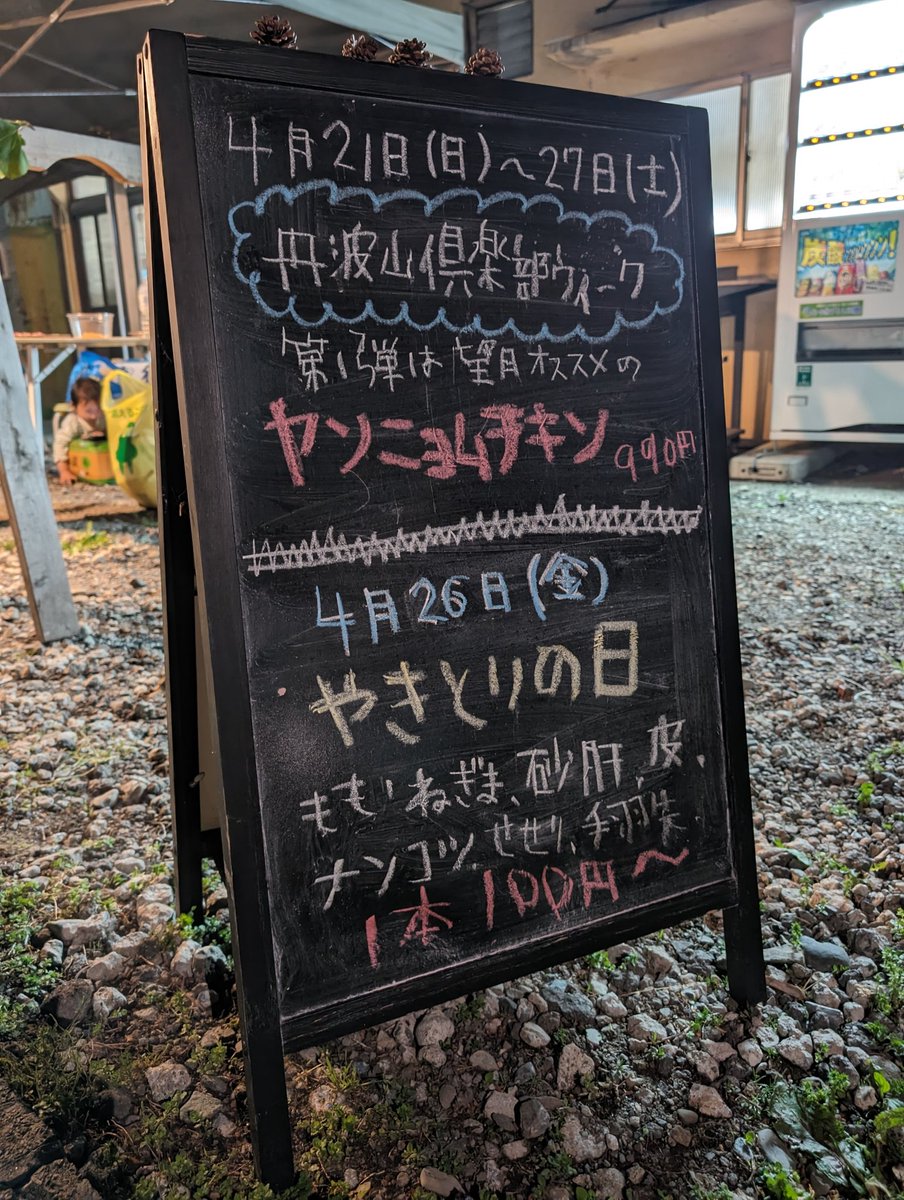 4月21日(日)～27日(土)
丹波山倶楽部ウィーク
第1弾は望月オススメの
ヤンニョムチキン 990円
4月26日(金)
やきとりの日
もも、ねぎま、砂肝、皮、
ナンコツ、せせり、手羽先
1本100円～
炭酸